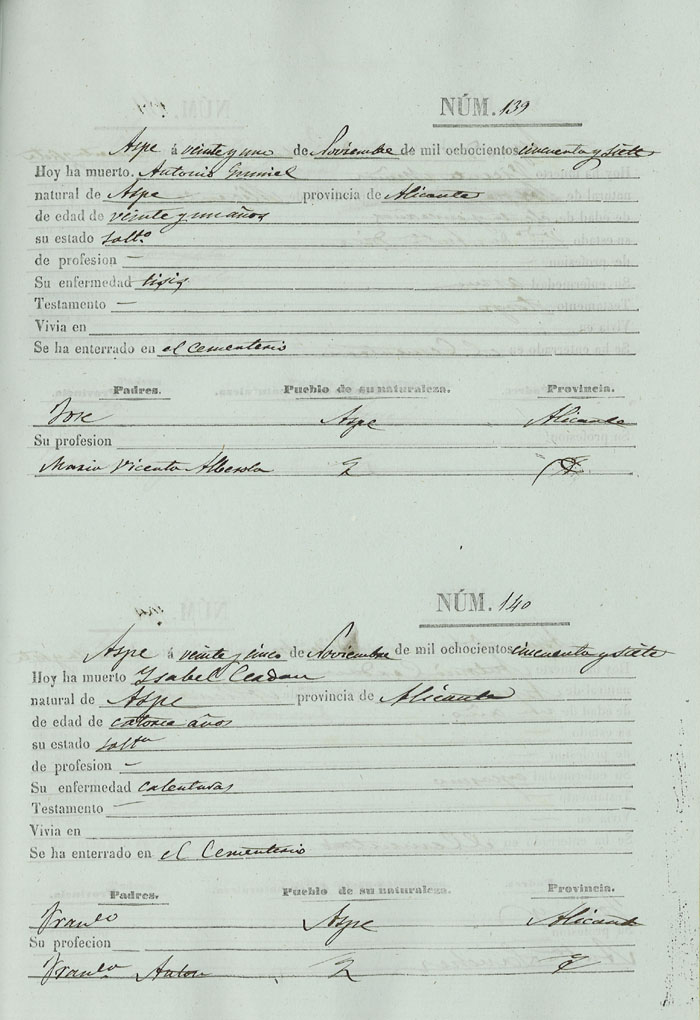 NÚM. 139
Aspe á veinte y uno de Noviembre de mil ochocientos cincuenta y siete
Hoy ha muerto. Antonio
natural de Aspe provincia de Alicante
de edad de veinte y un años
su estado soltº
de profesion —
Su enfermedad tisis
Testamento —
Vivia en
Se ha enterrado en el Cementerio
Padres. Pueblo de su naturaleza. Provincia.
Jose Aspe Alicante
Su profesion
Maria Vicenta Alberola
NÚM. 140
Aspe á veinte y cinco de Noviembre de mil ochocientos cincuenta y siete
Hoy ha muerto Ysabel
natural de Aspe provincia de Alicante
de edad de catorce años
su estado soltª
de profesion —
Su enfermedad calenturas
Testamento —
Vivia en
Se ha enterrado en el Cementerio
Padres. Pueblo de su naturaleza. Provincia.
Franco Aspe Alicante
Su profecion
Franca Anton